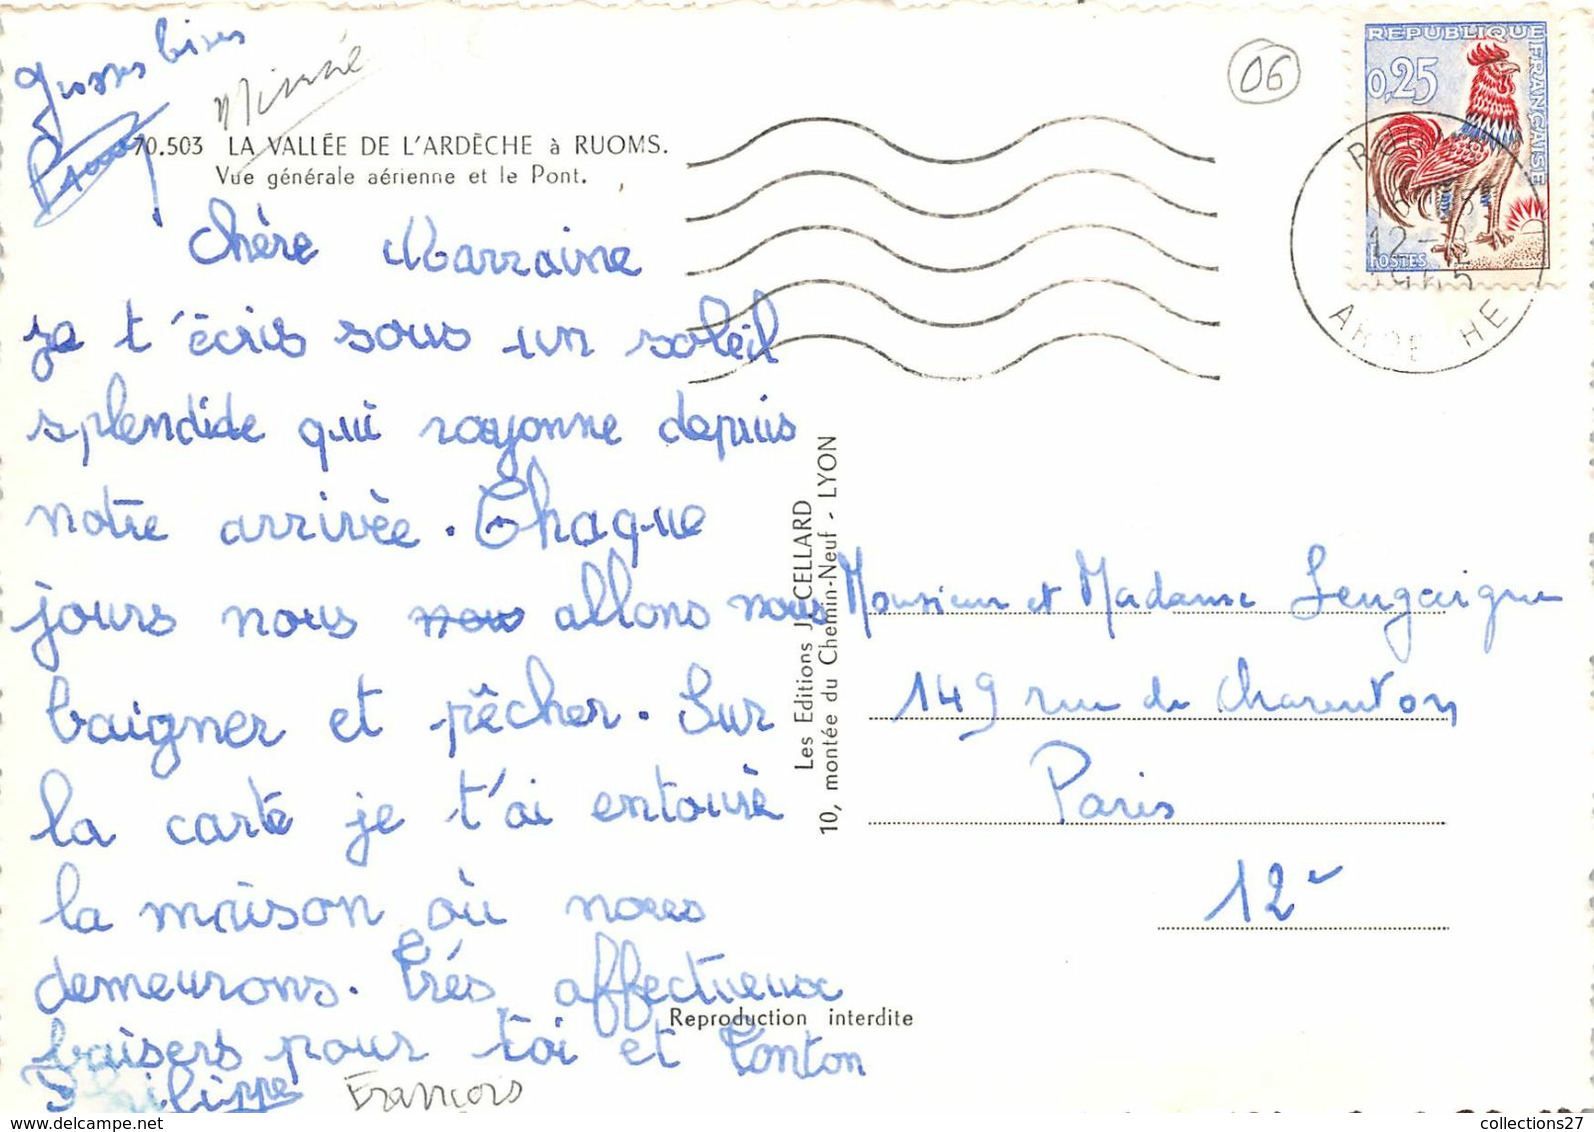 Grosses bises
Minné
70.503 LA VALLÉE DE L'ARDÈCHE à RUOMS.
Vue générale aérienne et le Pont.
Chère Marraine
je t'écris sous un soleil
splendide qui rayonne depuis
notre arrivée. Chaque
jours nous nous allons nous
baigner et pêcher. Sur
la carte je t'ai entouré
la maison où nous
demeurons. Très affectueux
baisers pour toi et Tonton
Philippe François
Les Editions J. CELLARD
10, montée du Chemin-Neuf - LYON
Reproduction interdite
06
REPUBLIQUE FRANÇAISE
0,25
POSTES
12-8
1965
ARDECHE
Monsieur et Madame Lengaigne
149 rue de Charenton
Paris
12e
collections27